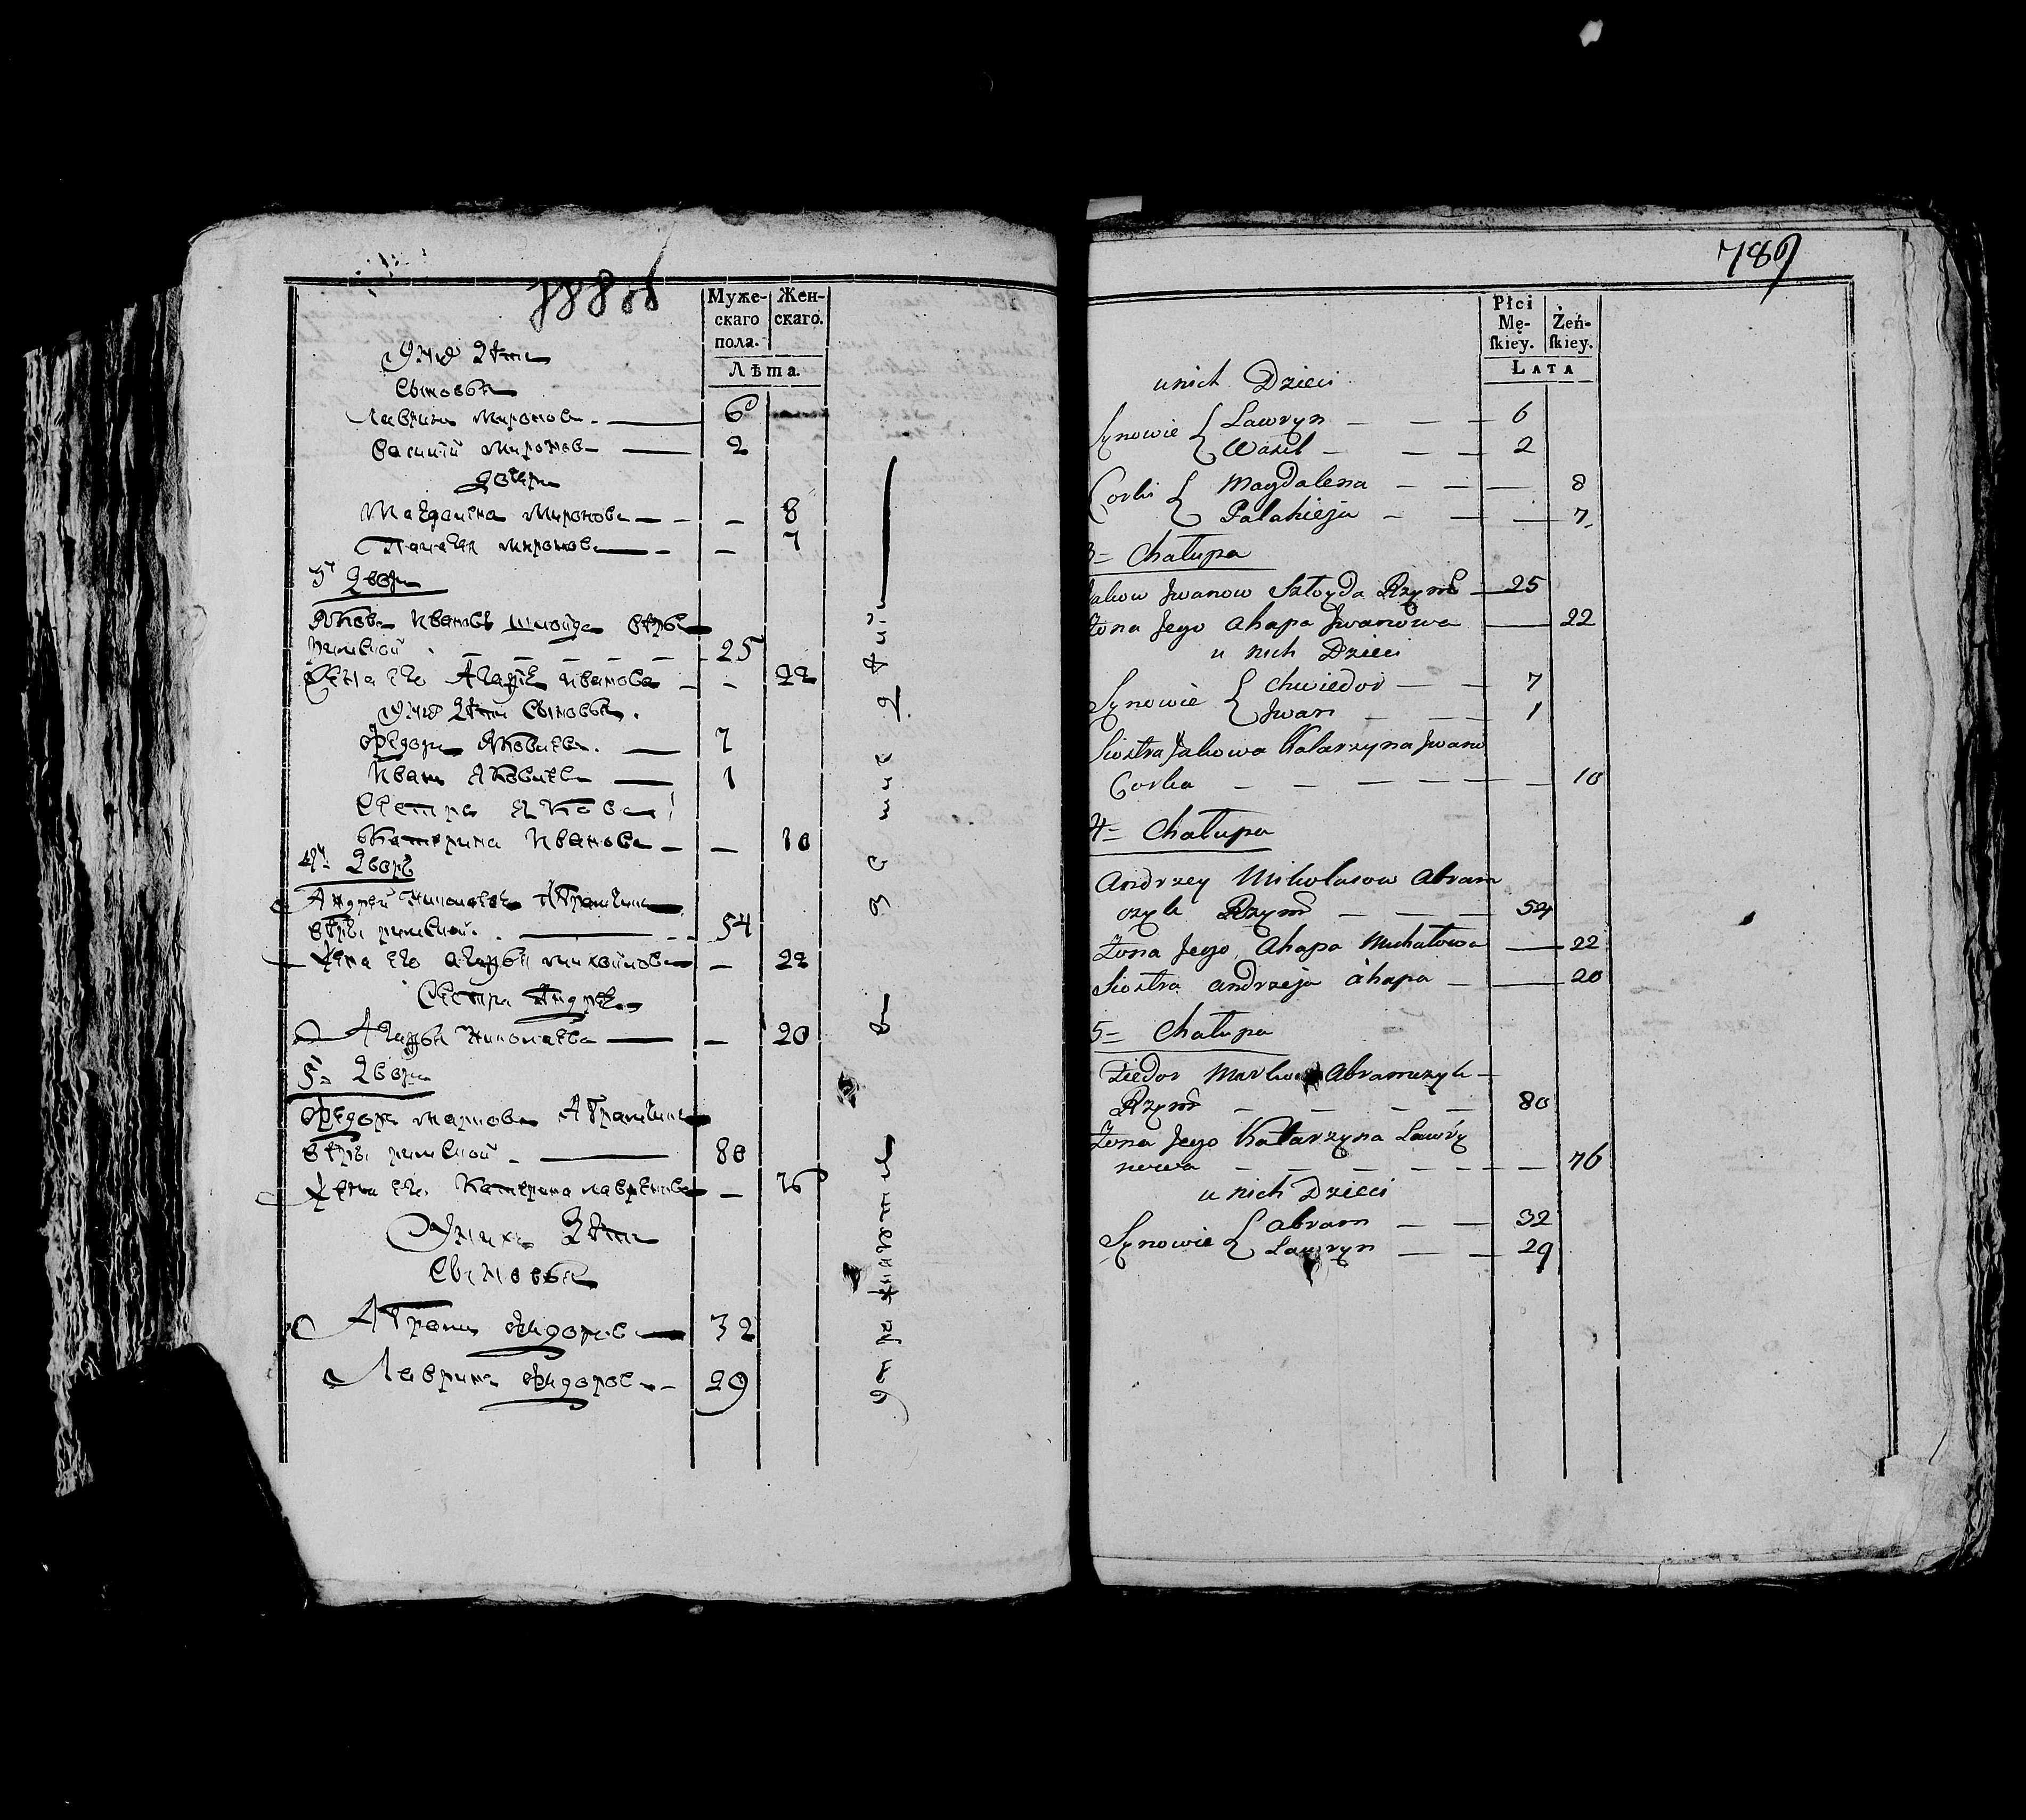 788об
Муже-
скаго
пола.
Жен-
скаго.
Лѣта.
Сыновья
Лаврин Миронов. 6
Василий Миронов 2
Дочери
Магдалена Миронова — — 8
Палагея Миронова — — 7
3й Двор
Яков Иванов Шлойда веры
римской . — — — 25
Жена его Агафья Иванова — — 22
Федор Яковлев. — 7
Иван Яковлев — 1
Сестра Якова
Катерина Иванова — — 10
4й Двор
Андрей Николаев Абрамчик
веры римской. — 54
Жена его Агафья Михайлова — 22
Сестра Андрея
Агафья Николаева — — 20
5й Двор
Федор Марков Абрамчик
веры римской — 80
Жена его Катерина Лавринова — 76
У них Дети
Сыновья
Абрам Федоров — 32
Лаврин Федоров — 29
789
Płci
Mę-
ſkiey.
Żeń-
ſkiey.
Lata
u nich Dzieci
Synowie { Lawryn — — — 6
{ Wasil — — — 2
Corki { Magdalena — — — 8
{ Palahieja — — — 7
3= Chałupa
Jakow Jwanow Szłoyda Rzym — 25
Żona Jego Ahapa Jwanowa — 22
u nich Dzieci
Synowie { Chwiedor — — 7
{ Jwan — — — 1
Siostra Jakowa Katarzyna Jwano
Corka — — — — — 10
4= Chałupa
Andrzey Mikołaiow Abram
czyk Rzym — — — 54
Żona Jego Ahapa Michałowa — 22
Siostra Andrzeja Ahapa — — 20
5= Chałupa
Fiedor Markow Abramczyk —
Rzym — — — — 80
Żona Jego Katarzyna Lawry
nowa — — — — — — 76
u nich Dzieci
Synowie { Abram — — 32
{ Lawryn — — 29